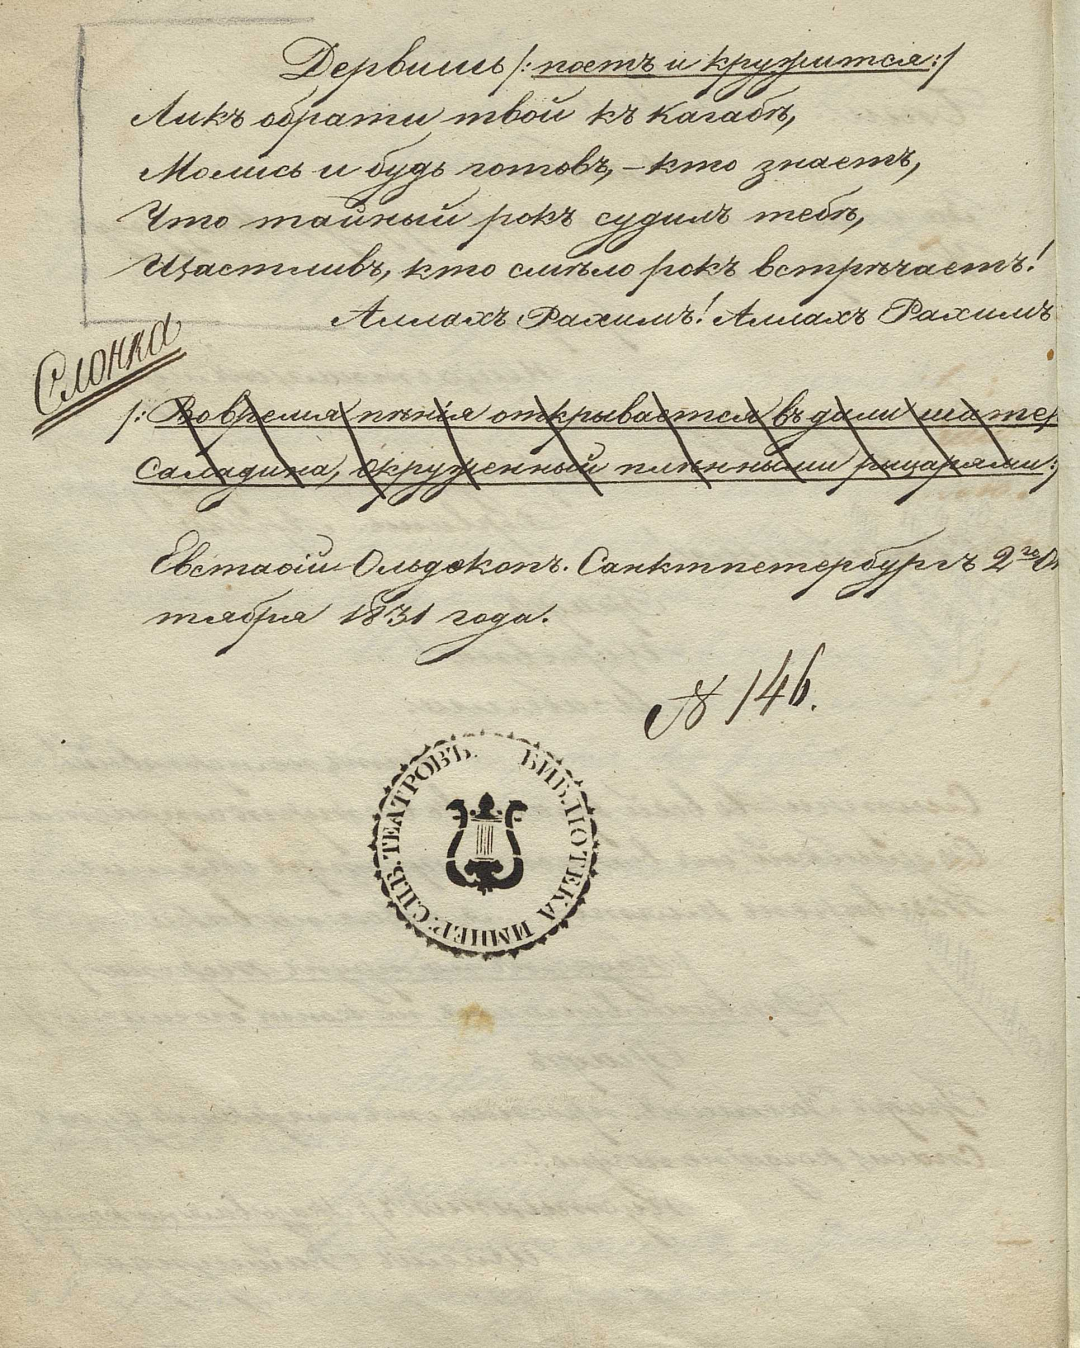 Дервишъ /: поетъ и кружится :/
Ликъ обрати твой къ Кагабѣ,
Молись и будь готовъ, – кто знаетъ,
Что тайный рокъ судилъ тебѣ,
Щастливъ, кто смѣло рокъ встрѣчаетъ!
Аллахъ Рахимъ! Аллахъ Рахимъ
/: Во время пѣнія открывается въ дали шатер
Саладина, окруженный плѣнными рыцарями :/
Евстафій Ольдекопъ. Санктпетербургъ 2го Ок
тября 1831 года.
N 146.
БИБЛІОТЕКА ИМПЕР: С.П.Б. ТЕАТРОВЪ.